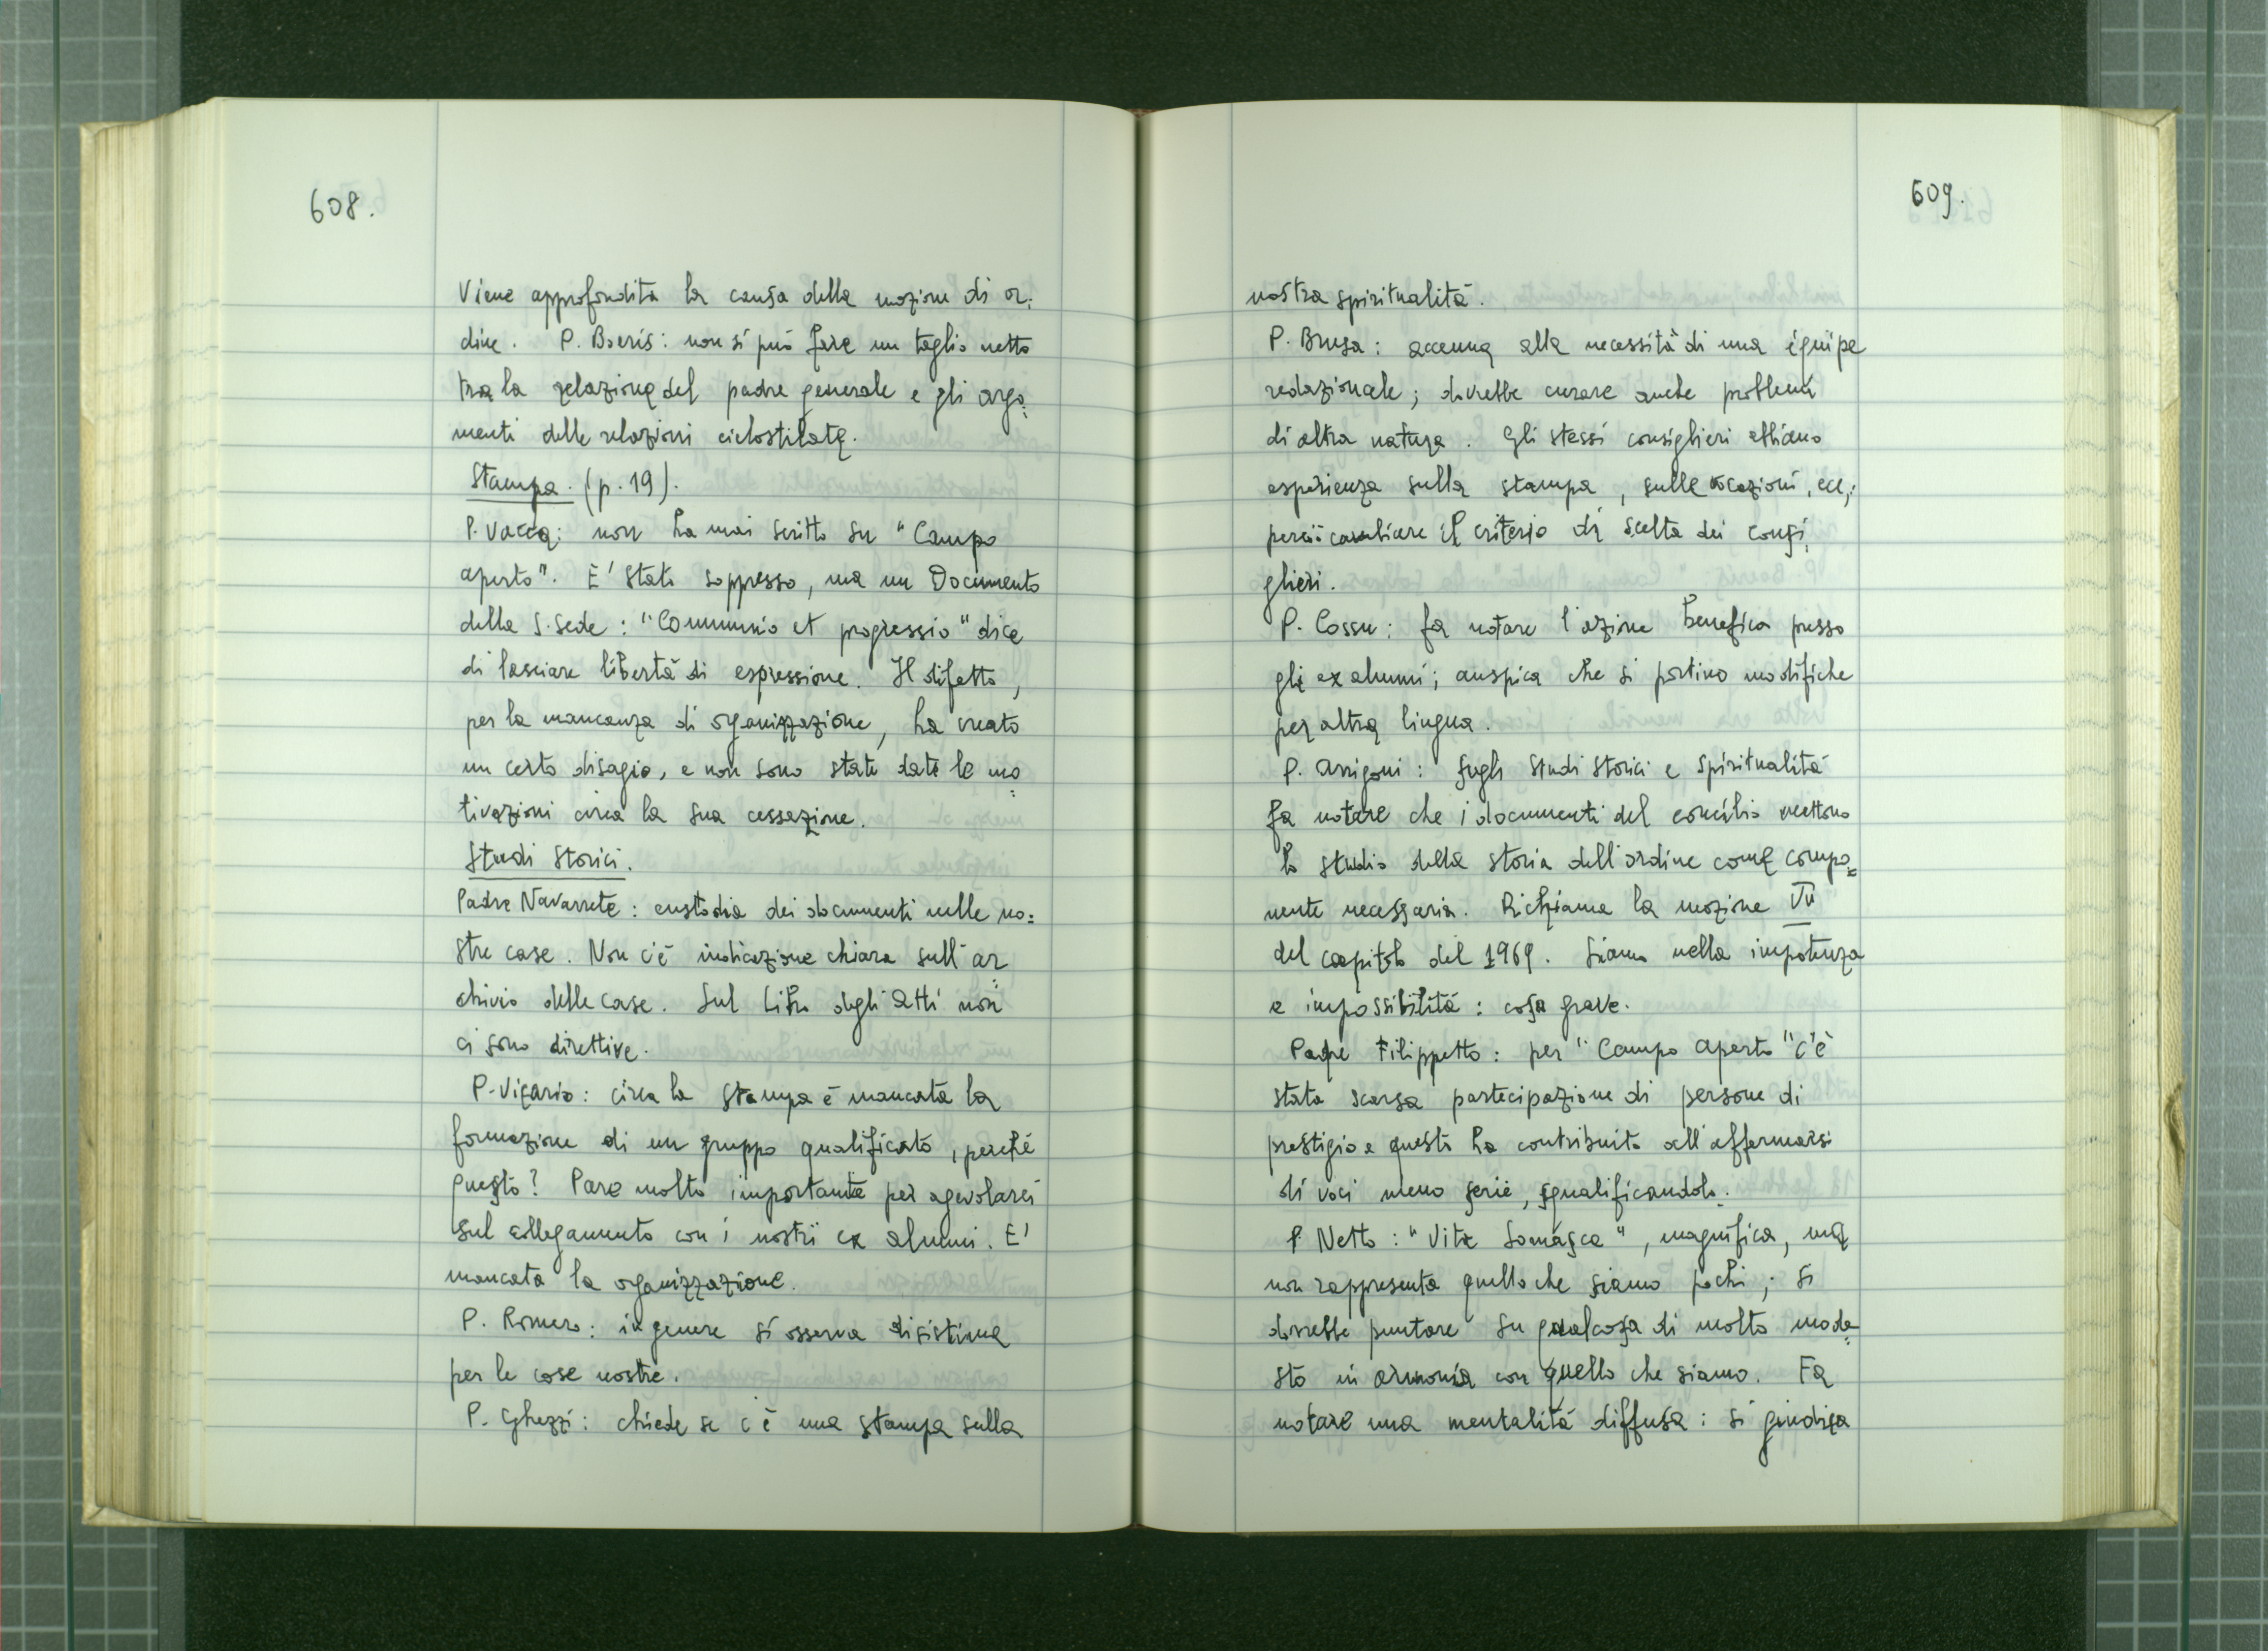 608.
Viene approfondita la causa della mozione di or:
dine. P. Boeris: non si può fare un taglio netto
tra la relazione del padre generale e gli argo:
menti delle relazioni ciclostilate.
Stampa. (p. 19).
P. Vacca: non ha mai scritto su "Campo
aperto". E' stato soppresso, ma un Documento
della S. Sede: "Communio et progressio" dice
di lasciare libertà di espressione. Il difetto,
per la mancanza di organizzazione, ha creato
un certo disagio, e non sono state date le mo=
tivazioni circa la sua cessazione.
Studi Storici.
Padre Navarrete: custodia dei documenti nelle no=
stre case. Non c'è indicazione chiara sull'ar=
chivio delle case. Sul Libro degli Atti non
ci sono direttive.
P. Vicario: circa la stampa è mancata la
formazione di un gruppo qualificato, perché
questo? Pare molto importante per agevolarci
sul collegamento con i nostri ex alunni. E'
mancata la organizzazione.
P. Romero: in genere si osserva disistima
per le cose nostre.
P. Ghezzi: chiede se c'è una stampa sulla
609.
nostra spiritualità.
P. Brusa: accenna alla necessità di una équipe
redazionale; dovrebbe curare anche problemi
di altra natura. Gli stessi consiglieri abbiano
esperienza sulla stampa, sulle vocazioni, ecc;
perciò cambiare il criterio di scelta dei consi
glieri.
P. Cossu: fa notare l'azione benefica presso
gli ex alunni; auspica che si portino modifiche
per altra lingua.
P. Arrigoni: sugli Studi Storici e Spiritualità
fa notare che i documenti del concilio mettono
lo studio della storia dell'ordine come compo=
nente necessaria. Richiama la mozione
del capitolo del 1969. Siamo nella impotenza
e impossibilità: cosa grave.
Padre Filippetto: per "Campo aperto" c'è
stata scarsa partecipazione di persone di
prestigio e questo ha contribuito all'affermarsi
di voci meno serie, squalificandolo.
P Netto: "Vita Somasca", magnifica, ma
non rappresenta quello che siamo pochi; si
dovrebbe puntare su qualcosa di molto mode=
sto in armonia con quello che siamo. Fa
notare una mentalità diffusa: si giudica